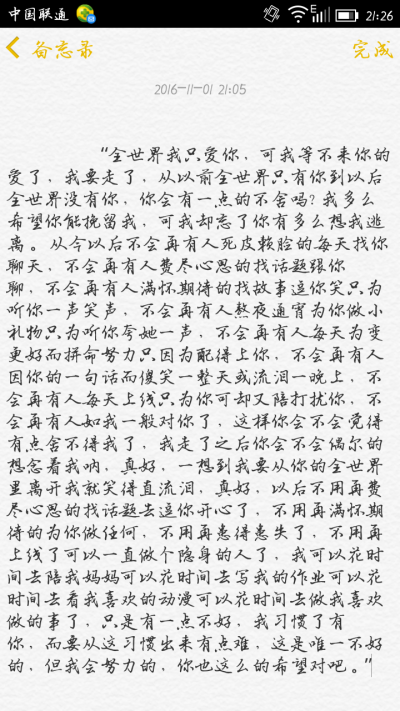 中国联通 21:26
备忘录 完成
2016-11-01 21:05
“全世界我只爱你，可我等不来你的
爱了，我要走了，从以前全世界只有你到以后
全世界没有你，你会有一点的不舍吗？我多么
希望你能挽留我，可我却忘了你有多么想我逃
离。从今以后不会再有人死皮赖脸的每天找你
聊天，不会再有人费尽心思的找话题跟你
聊，不会再有人满怀期待的找故事逗你笑只为
听你一声笑声，不会再有人熬夜通宵为你做小
礼物只为听你夸她一声，不会再有人每天为变
更好而拼命努力只因为配得上你，不会再有人
因你的一句话而傻笑一整天或流泪一晚上，不
会再有人每天上线只为你可却又陪打扰你，不
会再有人如我一般对你了，这样你会不会觉得
有点舍不得我了，我走了之后你会不会偶尔的
想念着我呐，真好，一想到我要从你的全世界
里离开我就笑得直流泪，真好，以后不用再费
尽心思的找话题去逗你开心了，不用再满怀期
待的为你做任何，不用再患得患失了，不用再
上线了可以一直做个隐身的人了，我可以花时
间去陪我妈妈可以花时间去写我的作业可以花
时间去看我喜欢的动漫可以花时间去做我喜欢
做的事了，只是有一点不好，我习惯了有
你，而要从这习惯出来有点难，这是唯一不好
的，但我会努力的，你也这么的希望对吧。”